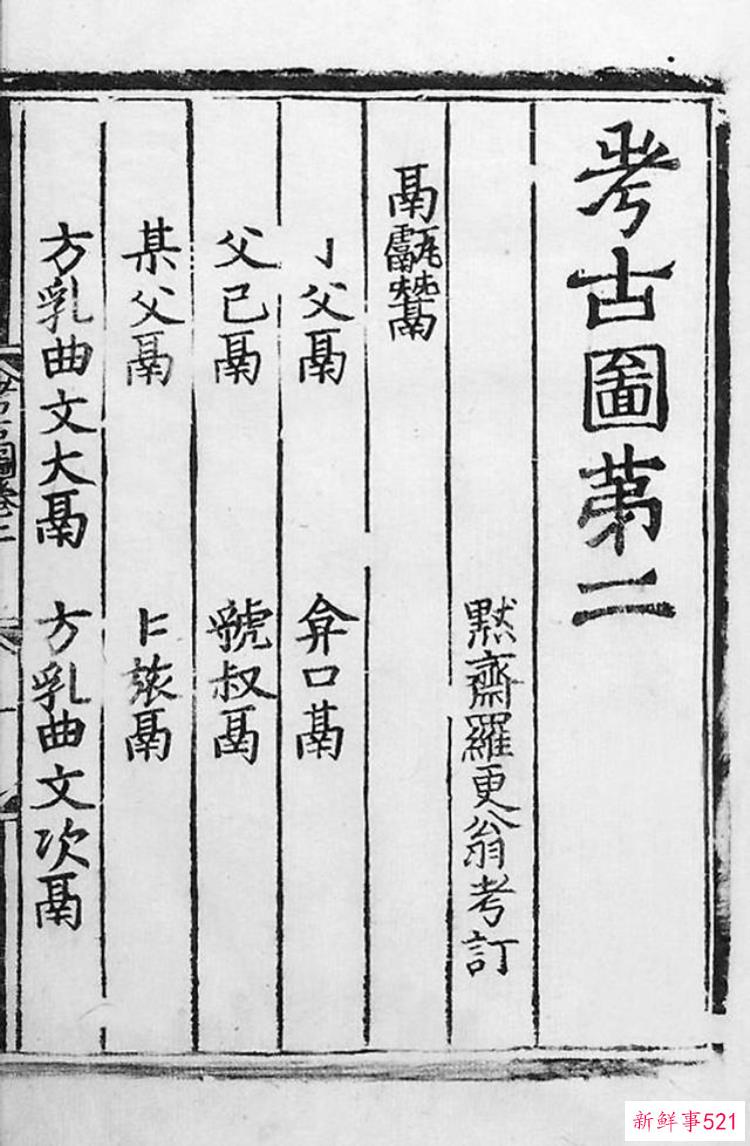 考古圖第二
默齋羅更翁考訂
鬲甗鬵
父鬲 弇口鬲
父己鬲 虢叔鬲
某父鬲 旅鬲
方乳曲文大鬲 方乳曲文次鬲
考古圖卷二
新鲜事521